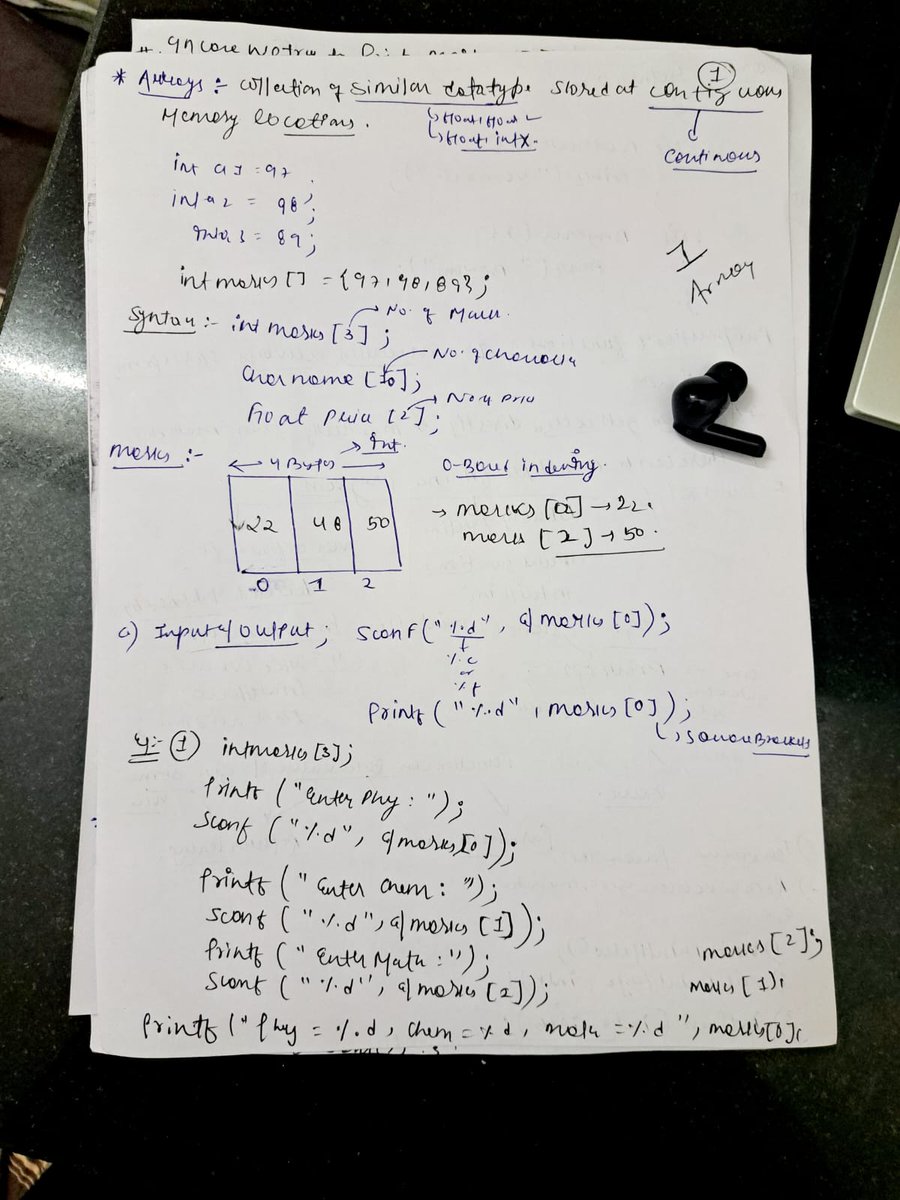 ①
* Arrays :- Collection of similar datatype stored at contiguous
Memory locations.
↳ float, float ✓
↳ float, int X.
Continous
int a1 = 97 ;
int a2 = 98 ;
int a3 = 89 ;
int marks [] = {97, 98, 89};
1
Array
Syntax :- int marks [3] ; → No. of Marks.
Char name [10]; No. of characters
float price [2] ; → No of price
marks :-
← 4 Bytes → Int.
22 48 50
0 1 2
0-Based indexing.
→ marks [0] → 22.
marks [2] → 50.
a) Input & Output ; Scanf ("%d", & marks [0]);
%c
or
%f
Printf ("%d", marks [0]);
↳ Square Brackets
①
int marks [3];
Printf ("Enter Phy : ");
Scanf ("%d", & marks [0]);
Printf ("Enter Chem : ");
Scanf ("%d", & marks [1]);
Printf ("Enter Math : ");
Scanf ("%d", & marks [2]);
Printf ("Phy = %d, Chem = %d, Math = %d", marks [0],
marks [1],
marks [2];